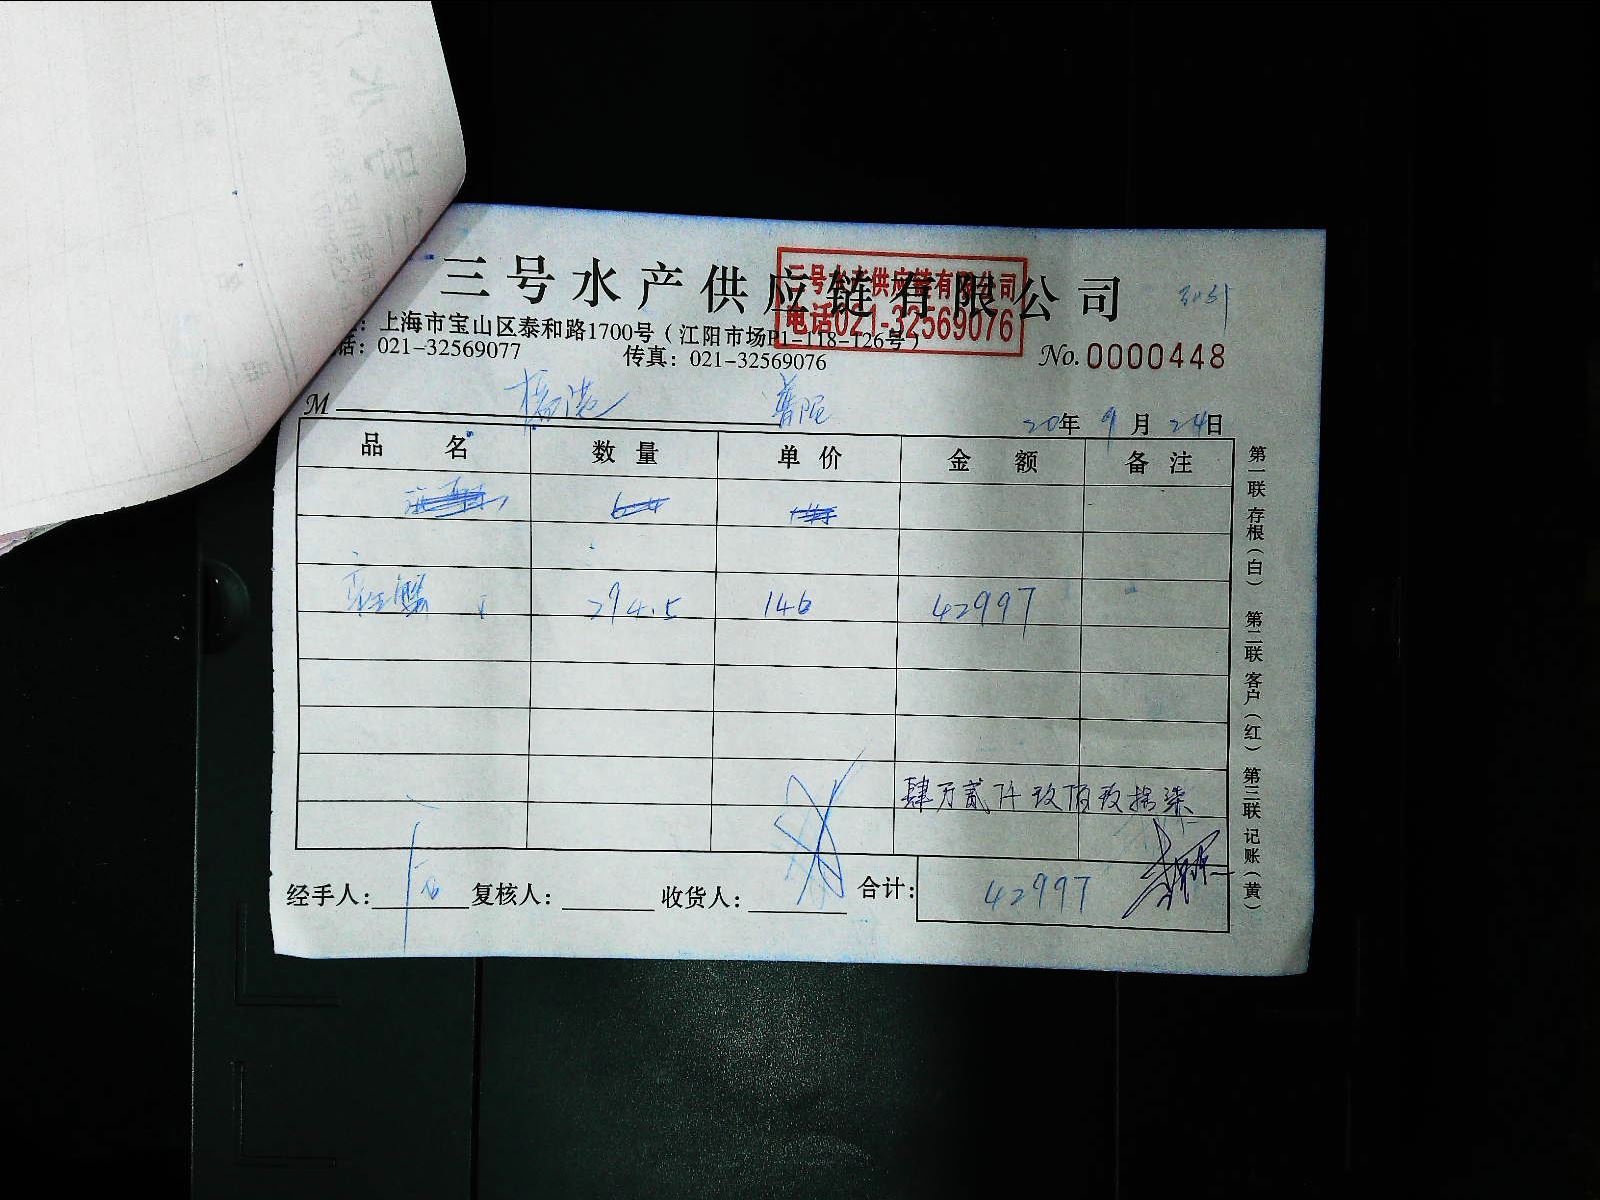 三号水产供应链有限公司
三号水产供应链有限公司
电话021-32569076
上海市宝山区泰和路1700号（江阳市场P1-118-126号）
话：021-32569077 传真：021-32569076
No.0000448
M
20年 9月 24日
品名 数量 单价 金额 备注
帝王蟹 294.5 146 42997
肆万贰仟玖佰玖拾柒
经手人： 复核人： 收货人： 合计：42997
第一联 存根（白） 第二联 客户（红） 第三联 记账（黄）